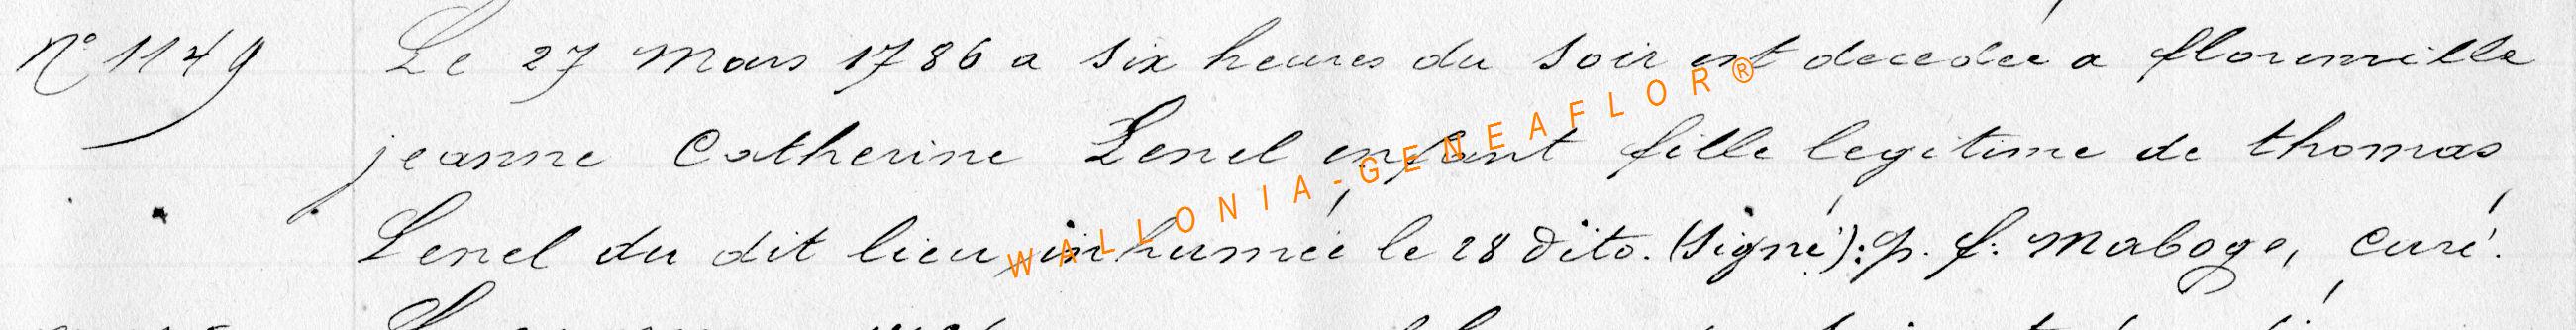 N° 1149 Le 27 Mars 1786 a six heures du soir est decedée a florenville
jeanne Catherine Lenel enfant fille legitime de thomas
Lenel du dit lieu, inhumée le 28 dito. (signé): p. f. Maboge, curé.
WALLONIA-GENEAFLOR®